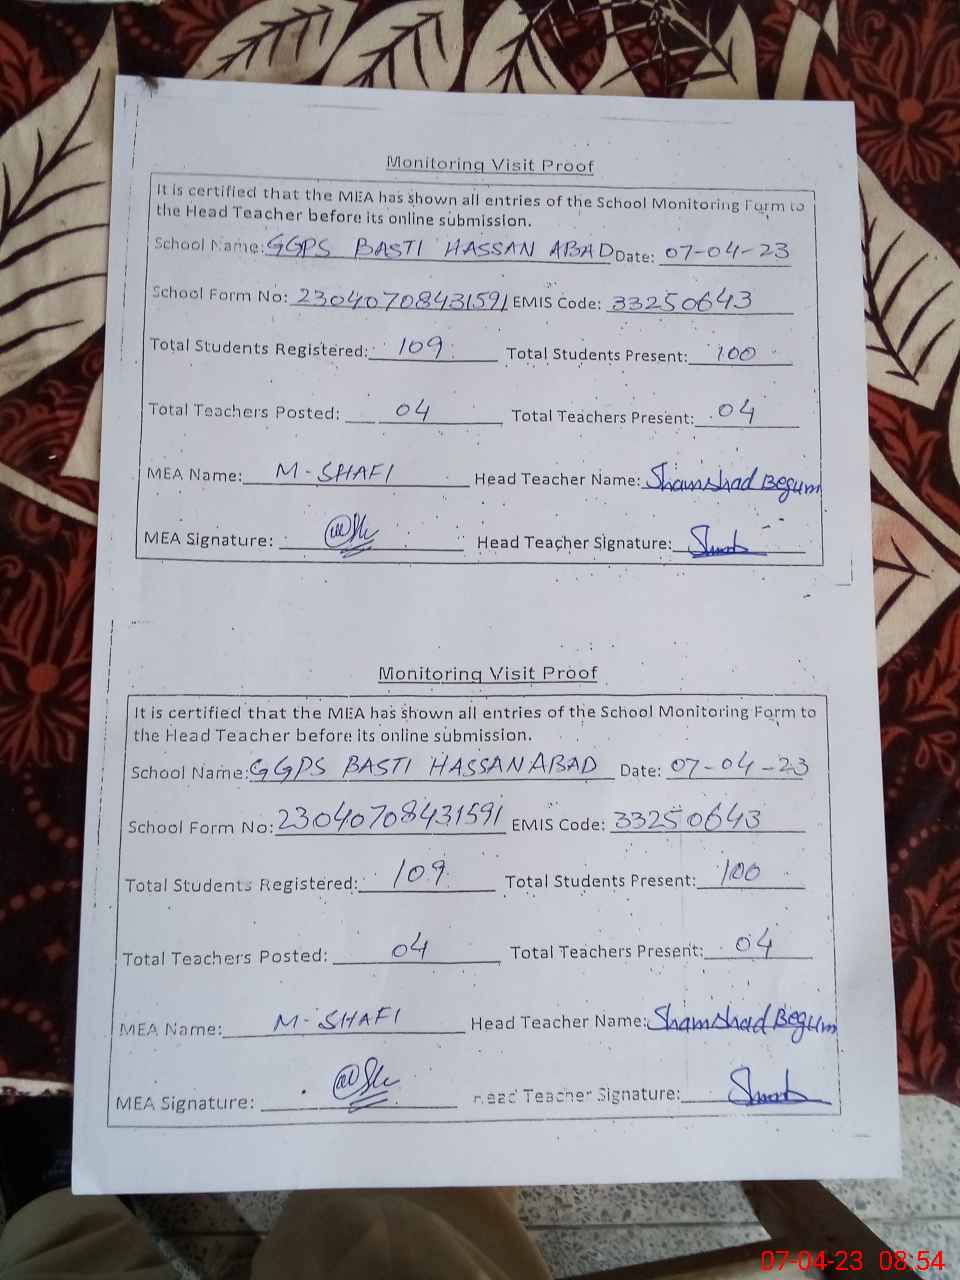 Monitoring Visit Proof
It is certified that the MEA has shown all entries of the School Monitoring Form to
the Head Teacher before its online submission.
School Name: GGPS BASTI HASSAN ABAD Date: 07-04-23
School Form No: 23040708431591 EMIS Code: 33250643
Total Students Registered: 109 Total Students Present: 100
Total Teachers Posted: 04 Total Teachers Present: 04
MEA Name: M-SHAFI Head Teacher Name: Shamshad Begum
MEA Signature: Head Teacher Signature:
Monitoring Visit Proof
It is certified that the MEA has shown all entries of the School Monitoring Form to
the Head Teacher before its online submission.
School Name: GGPS BASTI HASSAN ABAD Date: 07-04-23
School Form No: 23040708431591 EMIS Code: 33250643
Total Students Registered: 109 Total Students Present: 100
Total Teachers Posted: 04 Total Teachers Present: 04
MEA Name: M-SHAFI Head Teacher Name: Shamshad Begum
MEA Signature: Head Teacher Signature:
07-04-23 08:54